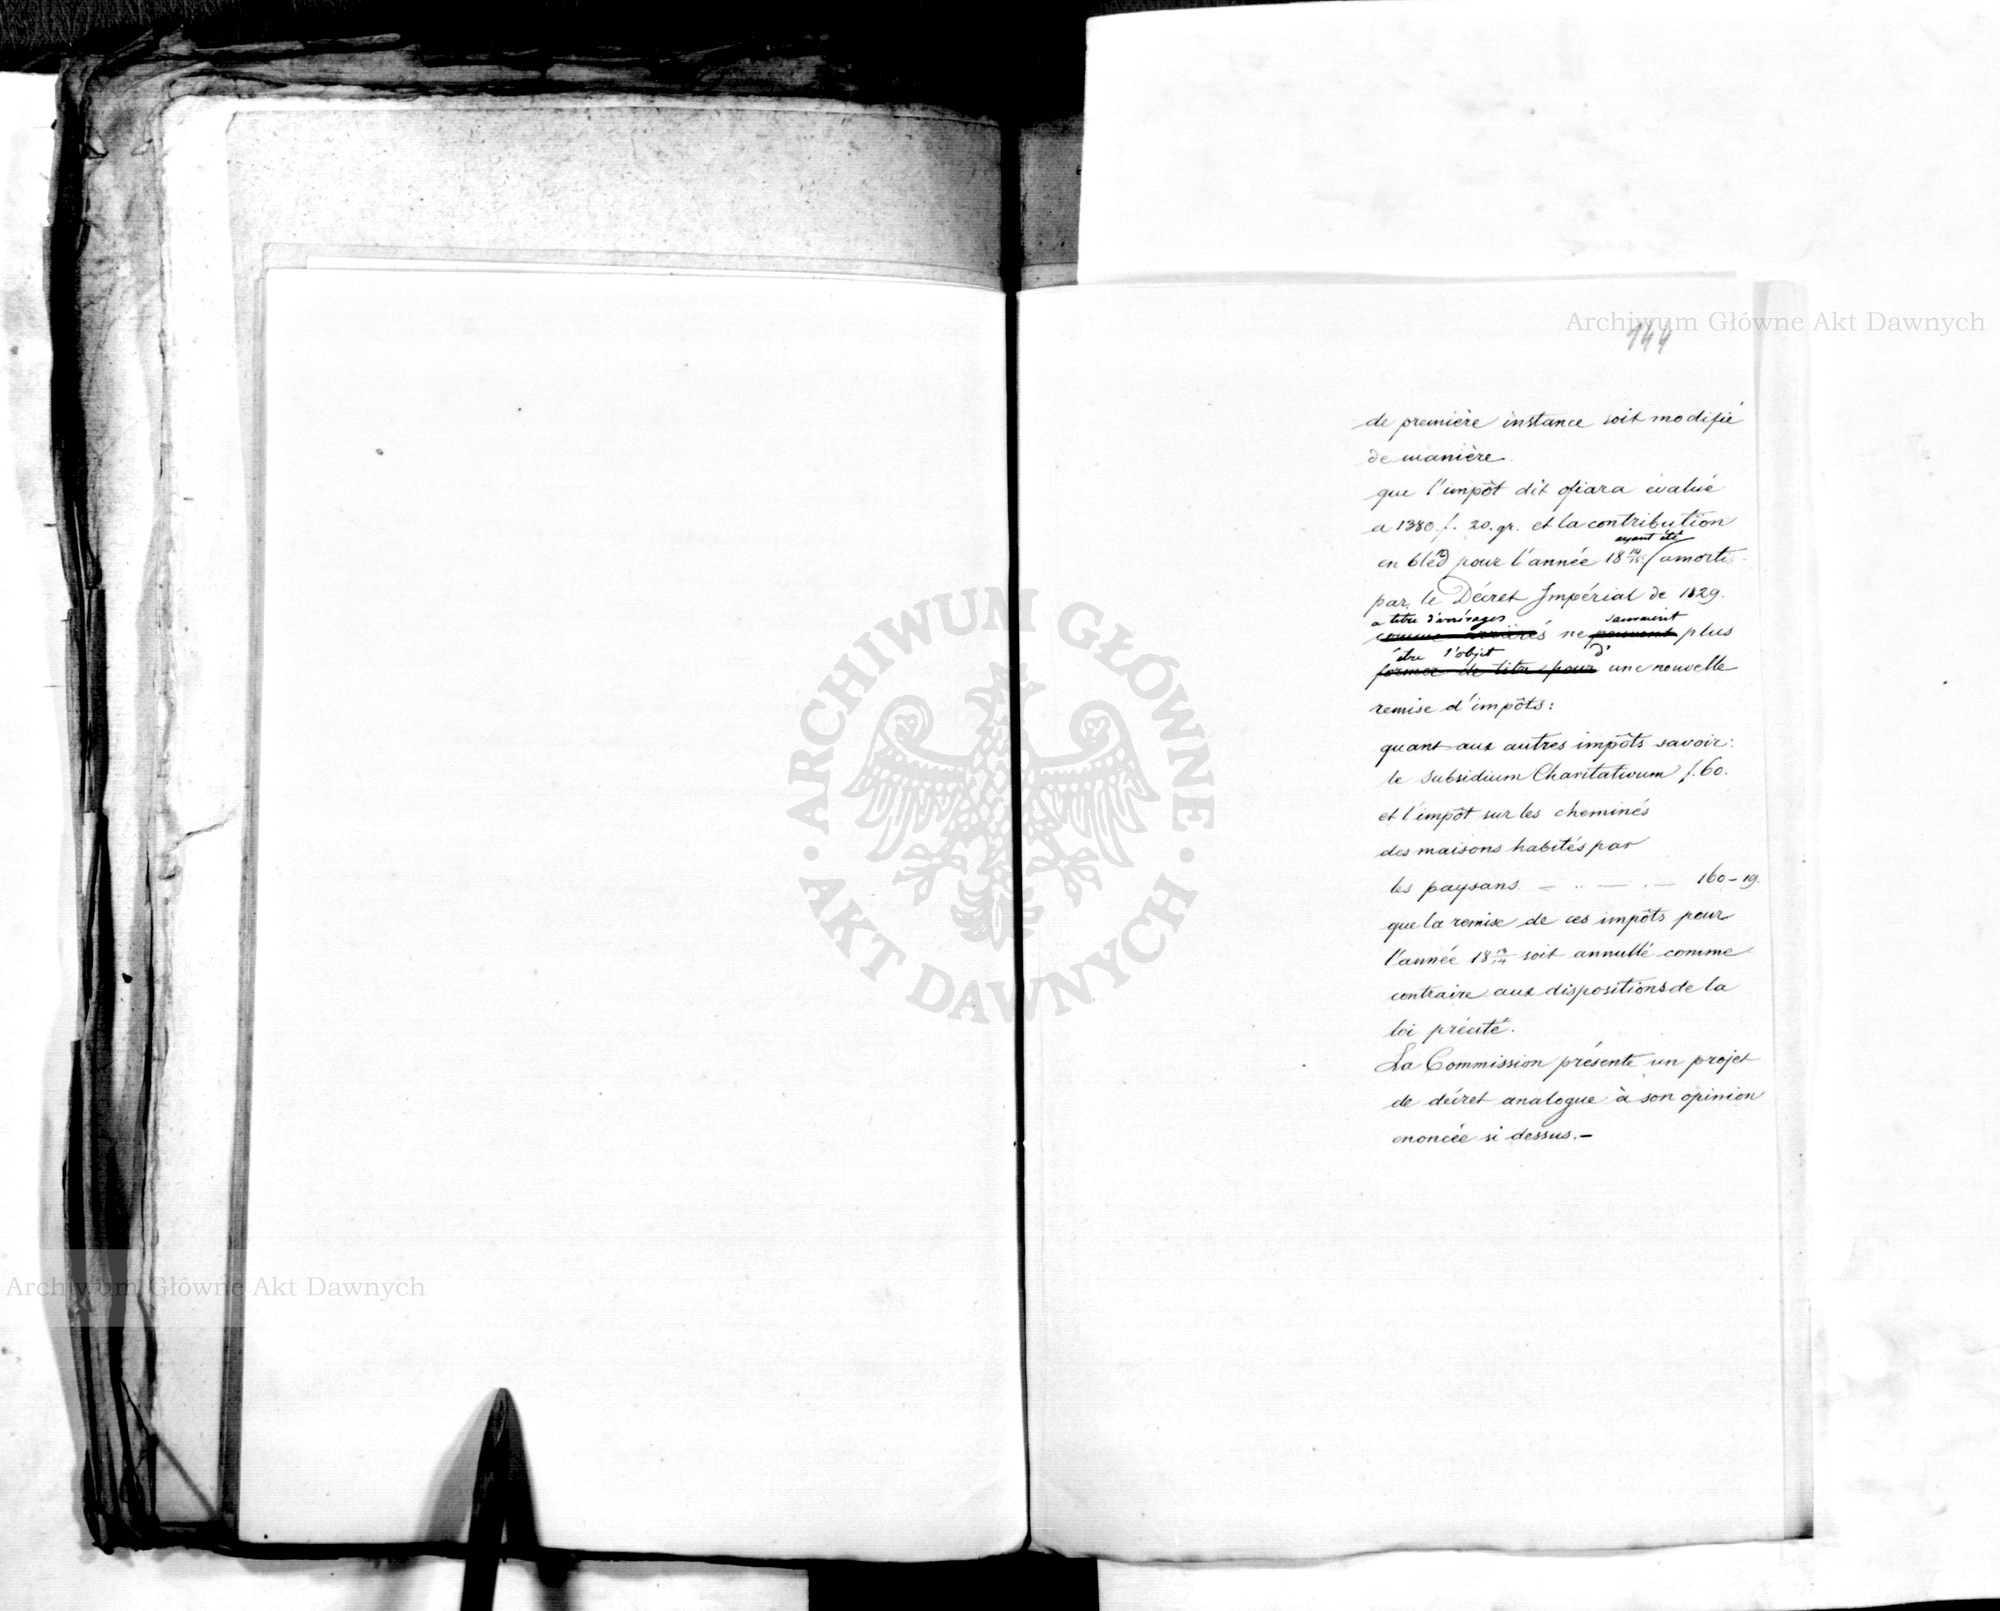 Archiwum Główne Akt Dawnych
144
de première instance soit modifié
de manière
que l'impôt dit ofiara évalué
a 1380 f. 20. gr. et la contribution
ayant été
en bled pour l'année 18 14/15 amortis
par le Décret Impérial de 1829.
a titre d'arrérages sauraient
comme arriérés ne peuvent plus
être l'objet d'
former de titre pour une nouvelle
remise d'impôts:
quant aux autres impôts savoir:
le Subsidium Charitativum f. 60.
et l'impôt sur les cheminés
des maisons habités par
les paysans 160 - 19.
que la remise de ces impôts pour
l'année 18 13/14 soit annullé comme
contraire aux dispositions de la
loi précité.
La Commission présente un projet
de décret analogue à son opinion
enoncée si dessus.-
ARCHIWUM GŁÓWNE
AKT DAWNYCH
Archiwum Główne Akt Dawnych